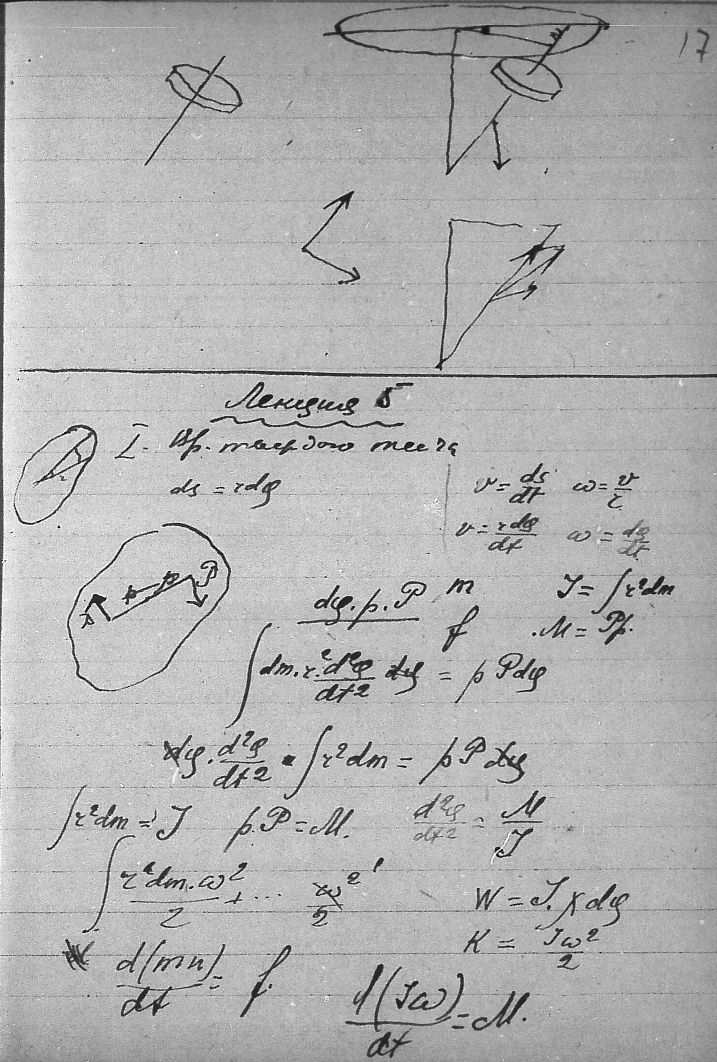 17
Лекция 5
I. Вр. твердого тела
ds = rdφ
v = ds/dt ω = v/r
v = rdφ/dt ω = dφ/dt
p p P
dφ.p.P m J = ∫r²dm
f M = Pp.
∫dm.r².d²φ/dt² dφ = pPdφ
dφ.d²φ/dt² . ∫r²dm = pPdφ
∫r²dm = J p.P = M. d²φ/dt² = M/J
∫r²dm.ω²/2 + ... ω²/2
W = J. dφ
K = Jω²/2
d(mu)/dt = f.
d(Jω)/dt = M.